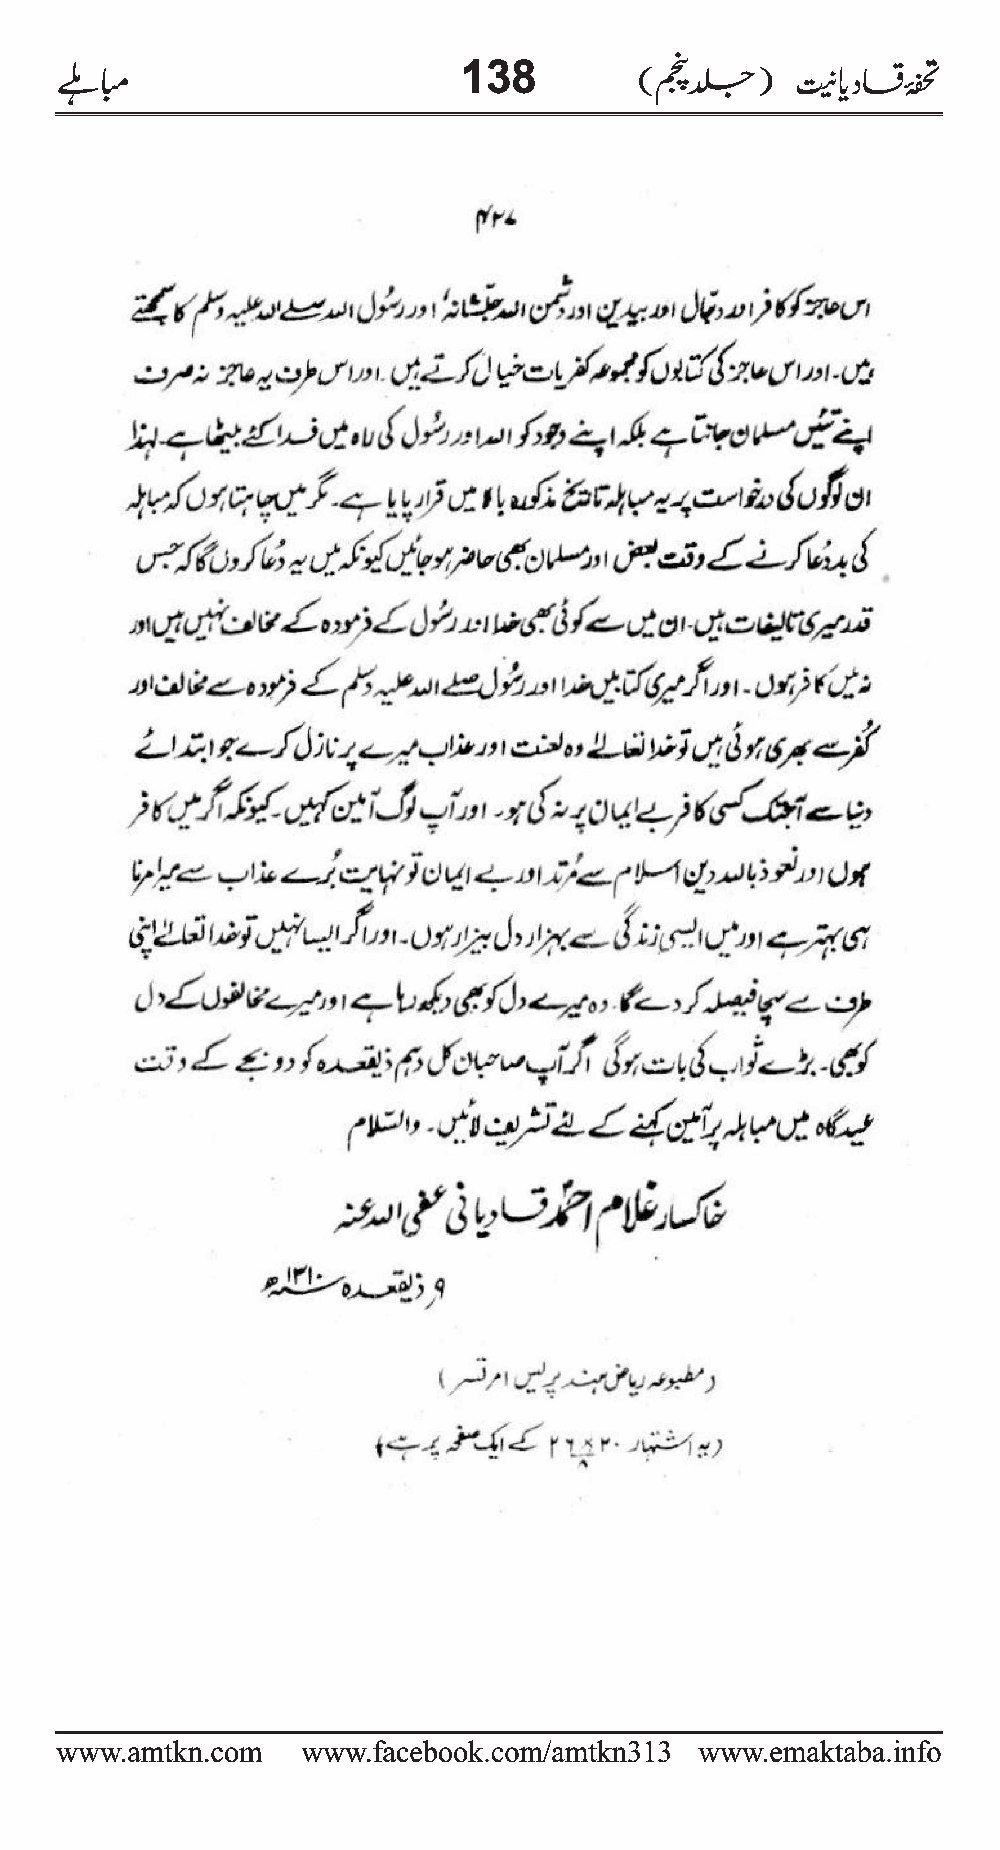 تحفۂ قادیانیت (جلد پنجم) 138 مباہلے
۴۲۷
اس عاجز کو کافر اور دجال اور بیدین اور دشمن اللہ جلّشانہٗ اور رسُول اللہ صلے اللہ علیہ وسلم کا سمجھتے
ہیں۔ اور اس عاجز کی کتابوں کو مجموعہ کفریات خیال کرتے ہیں۔ اور اس طرف یہ عاجز نہ صرف
اپنے تئیں مسلمان جانتا ہے بلکہ اپنے وجود کو اللہ اور رسُول کی راہ میں فدا کئے بیٹھا ہے۔ لہٰذا
ان لوگوں کی درخواست پر یہ مباہلہ تاریخ مذکورہ بالا میں قرار پایا ہے۔ مگر میں چاہتا ہوں کہ مباہلہ
کی بددُعا کرنے کے وقت بعض اور مسلمان بھی حاضر ہو جائیں کیونکہ میں یہ دُعا کروں گا کہ جس
قدر میری تالیفات ہیں۔ ان میں سے کوئی بھی خدا اور رسُول کے فرمودہ کے مخالف نہیں ہیں اور
نہ میں کافر ہوں۔ اور اگر میری کتابیں خدا اور رسُول صلے اللہ علیہ وسلم کے فرمودہ سے مخالف اور
کُفر سے بھری ہوئی ہیں تو خدا تعالےٰ وہ لعنت اور عذاب میرے پر نازل کرے جو ابتدائے
دنیا سے آجتک کسی کافر بے ایمان پر نہ کی ہو۔ اور آپ لوگ آمین کہیں۔ کیونکہ اگر میں کافر
ہوں اور نعوذ باللہ دین اسلام سے مُرتد اور بے ایمان تو نہایت بُرے عذاب سے میرا مرنا
ہی بہتر ہے اور میں ایسی زندگی سے بہزار دل بیزار ہوں۔ اور اگر ایسا نہیں تو خدا تعالےٰ اپنی
طرف سے سچا فیصلہ کر دے گا۔ وہ میرے دل کو بھی دیکھ رہا ہے اور میرے مخالفوں کے دل
کو بھی۔ بڑے ثواب کی بات ہوگی اگر آپ صاحبان کل دہم ذیقعدہ کو دو بجے کے وقت
عیدگاہ میں مباہلہ پر آمین کہنے کے لئے تشریف لائیں۔ والسّلام
خاکسار غلام احمدؐ قادیانی عفی اللہ عنہ
۹ ذیقعدہ ۱۳۱۰ھ
(مطبوعہ ریاض ہند پریس امرتسر)
(یہ اشتہار ۲۰×۲۶/۸ کے ایک صفحہ پر ہے)
www.amtkn.com www.facebook.com/amtkn313 www.emaktaba.info